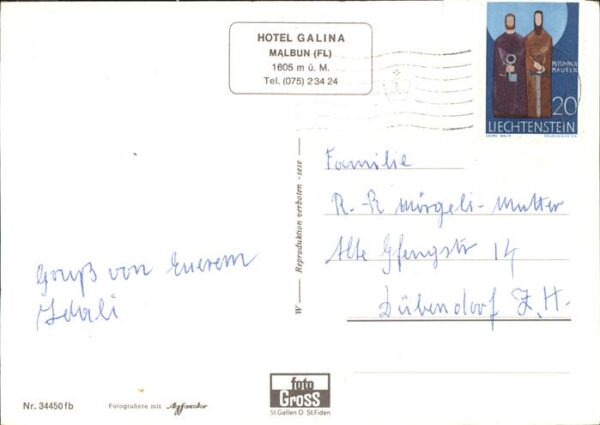 HOTEL GALINA
MALBUN (FL)
1605 m ü. M.
Tel. (075) 2 34 24
20
LIECHTENSTEIN
Familie
R.-R Mörgeli-Mutter
Alte Gfengstr 14
Dübendorf Z.H.
Gruß von Euerem
W — Reproduktion verboten - sese
Nr. 34450 fb
Fotografiere mit Agfacolor
foto
GROSS
St.Gallen O St.Fiden